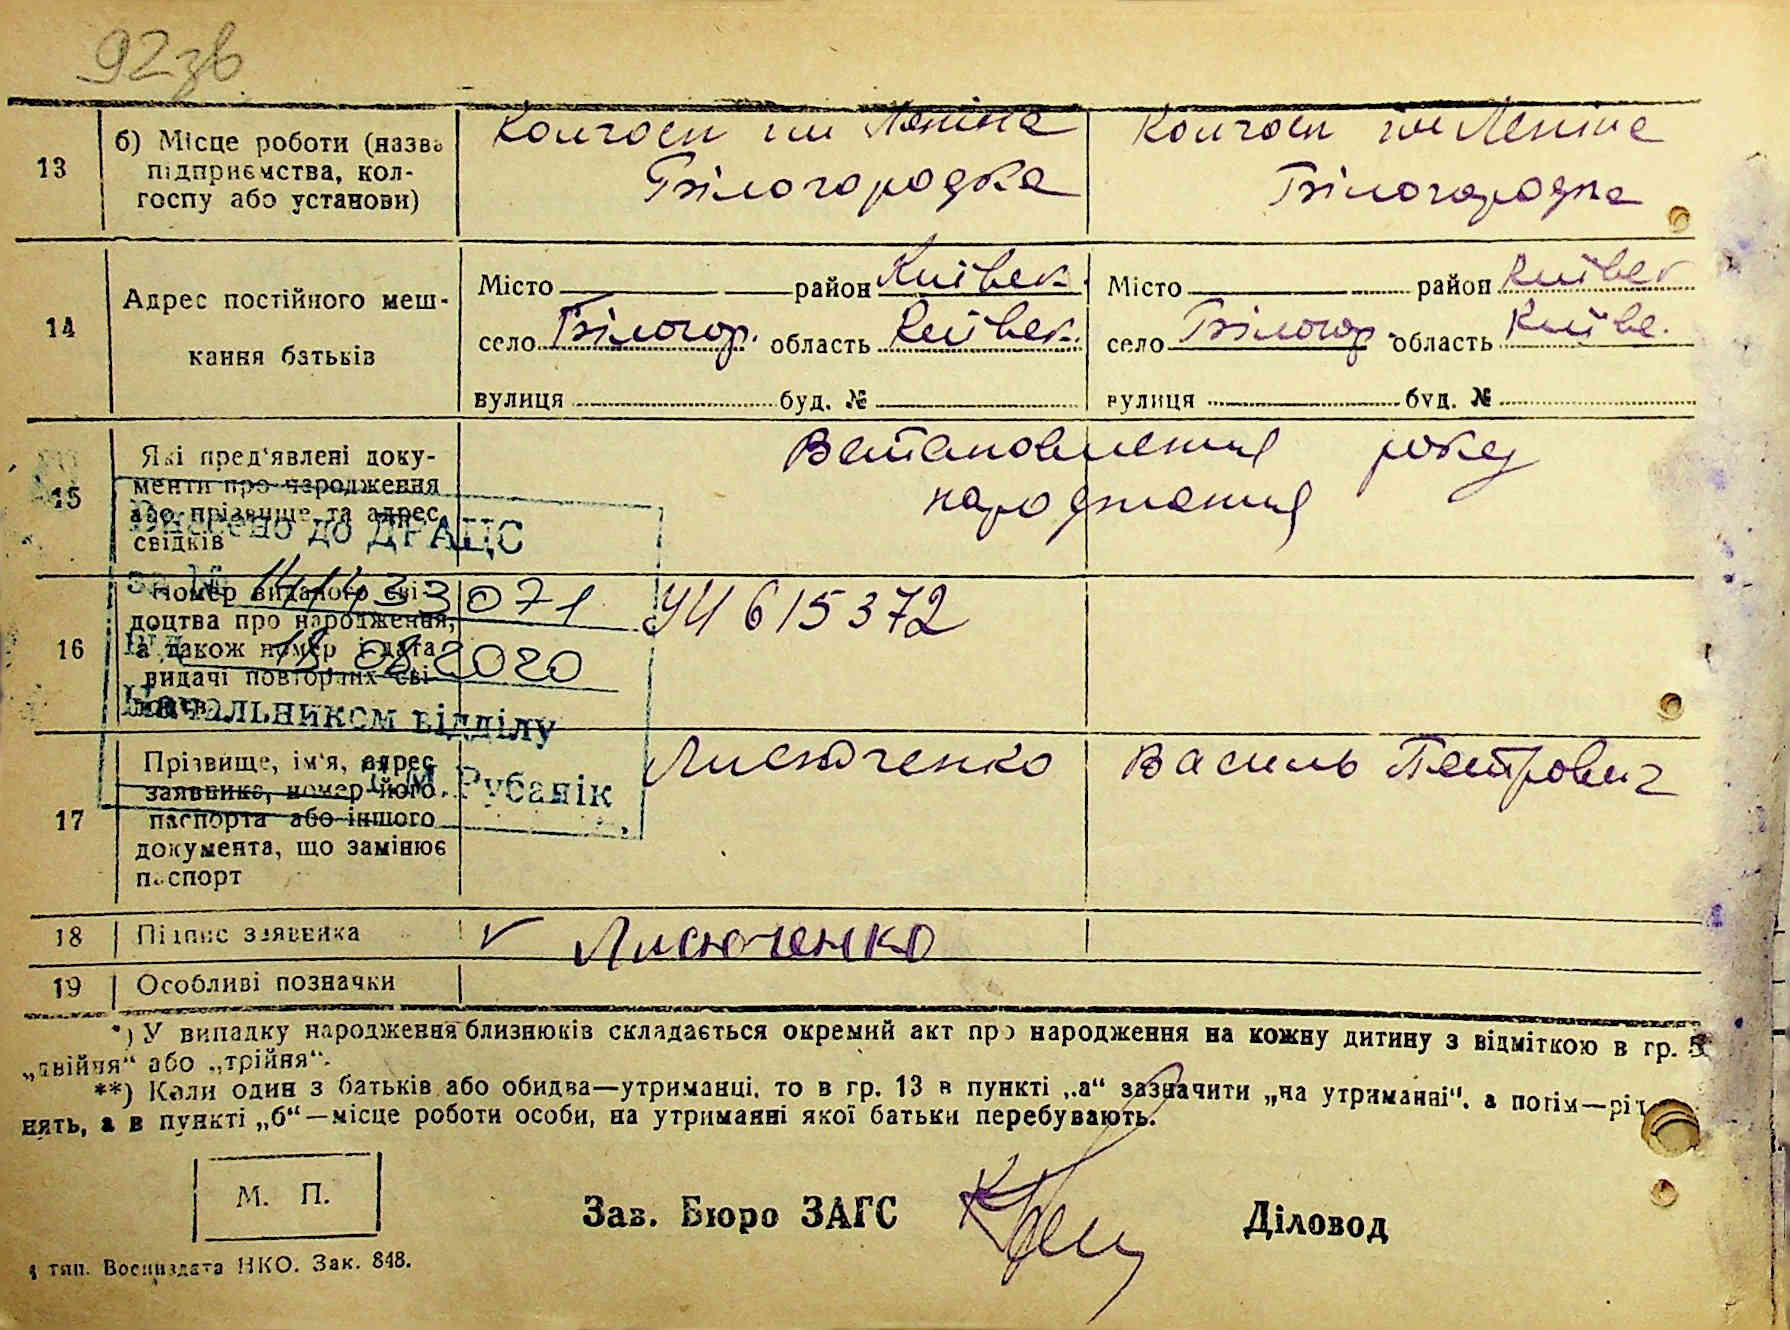 92зв
13 б) Місце роботи (назва підприємства, колгоспу або установи)
Колгосп ім Леніна Білогородка
Колгосп ім Леніна Білогородка
14 Адрес постійного мешкання батьків
Місто район Київськ.
село Білогор. область Київськ.
вулиця буд. №
Місто район Київськ
село Білогор. область Київс.
вулиця буд. №
15 Які пред'явлені документи про народження або прізвище та адрес свідків
Встановлення року
народження
Внесено до ДРАЦС
за №
від 18.08.2020
Начальником відділу
Рубанік
16 Номер виданого свідоцтва про народження, а також номер і дата видачі повторних свідоцтв
УЧ 615372
17 Прізвище, ім'я, адрес заявника, номер його паспорта або іншого документа, що замінює паспорт
Лисюченко Василь Петрович
18 Підпис заявника
v Лисюченко
19 Особливі позначки
*) У випадку народження близнюків складається окремий акт про народження на кожну дитину з відміткою в гр. 5
„двійня“ або „трійня“.
**) Коли один з батьків або обидва—утриманці, то в гр. 13 в пункті „а“ зазначити „на утриманні“, а потім—
нять, а в пункті „б“—місце роботи особи, на утриманні якої батьки перебувають.
М. П.
Зав. Бюро ЗАГС
Діловод
тип. Воениздата НКО. Зак. 848.